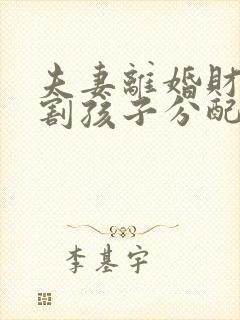 夫妻離婚財
割孩子分配
李基宇